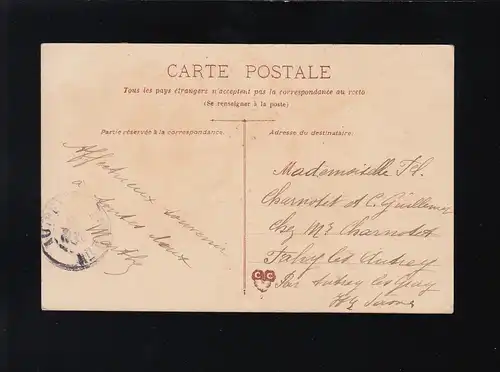 CARTE POSTALE
Tous les pays étrangers n'acceptent pas la correspondance au recto
(Se renseigner à la poste)
Partie réservée à la correspondance.
Affectueux souvenir
à toutes deux
Marthe
Adresse du destinataire:
Mademoiselle
Charnotet et C. Guillemin
chez Mr Charnotet
Fahy les Autrey
Par Autrey les Gray
Hte Saône
CC